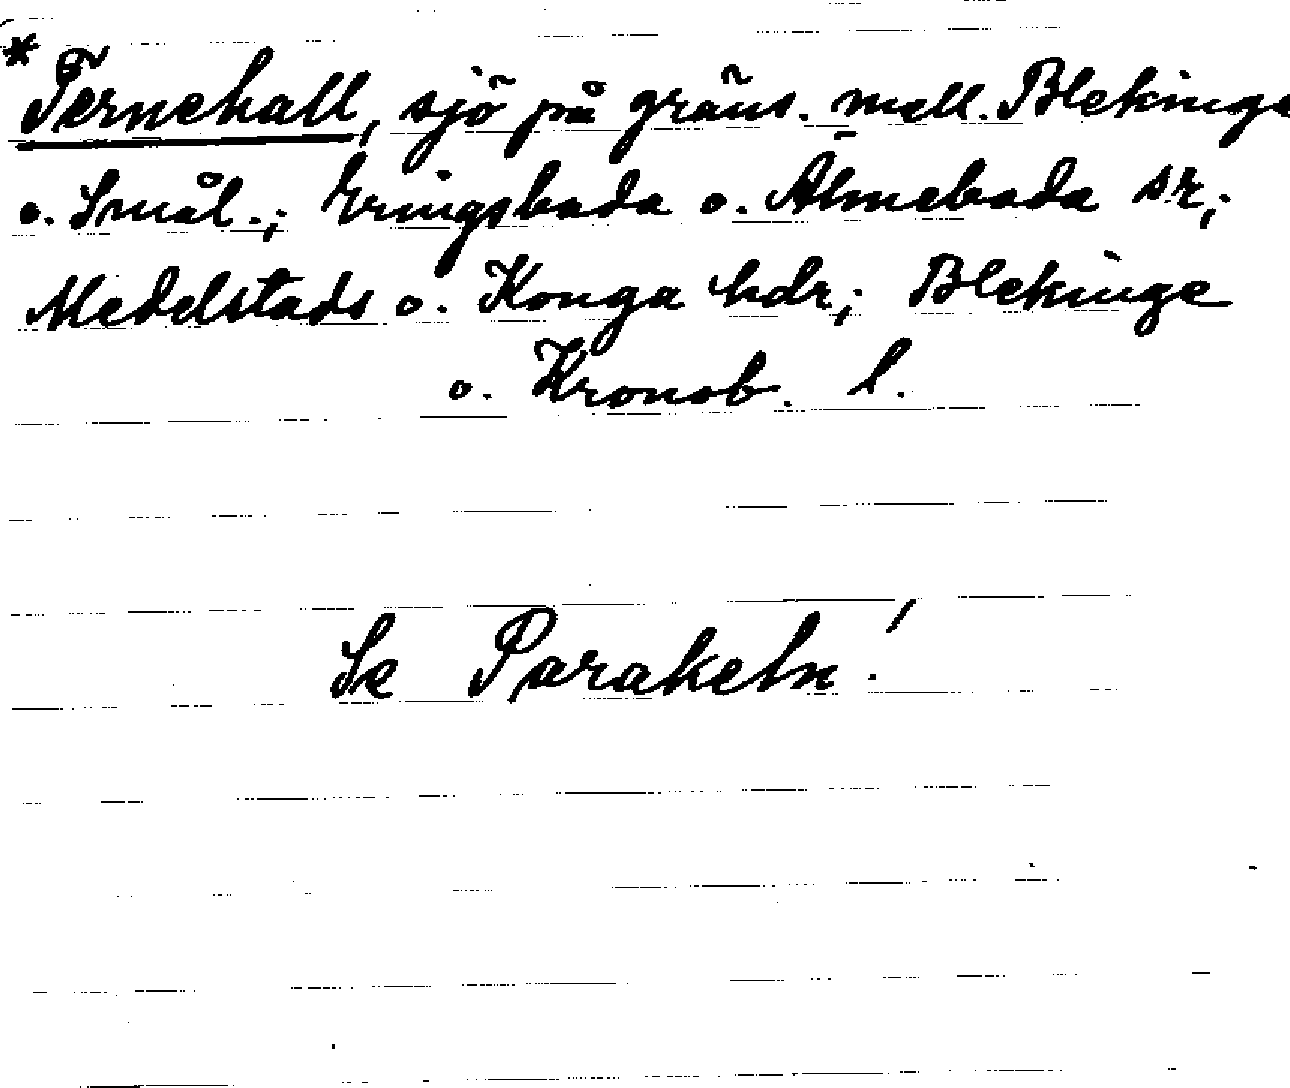 * Ternehall, sjö på gräns. mell. Blekinge
o. Smål.; Eringsboda o. Älmeboda sr;
Medelstads o. Konga hdr; Blekinge
o. Kronob. l.
Se Paraketn!